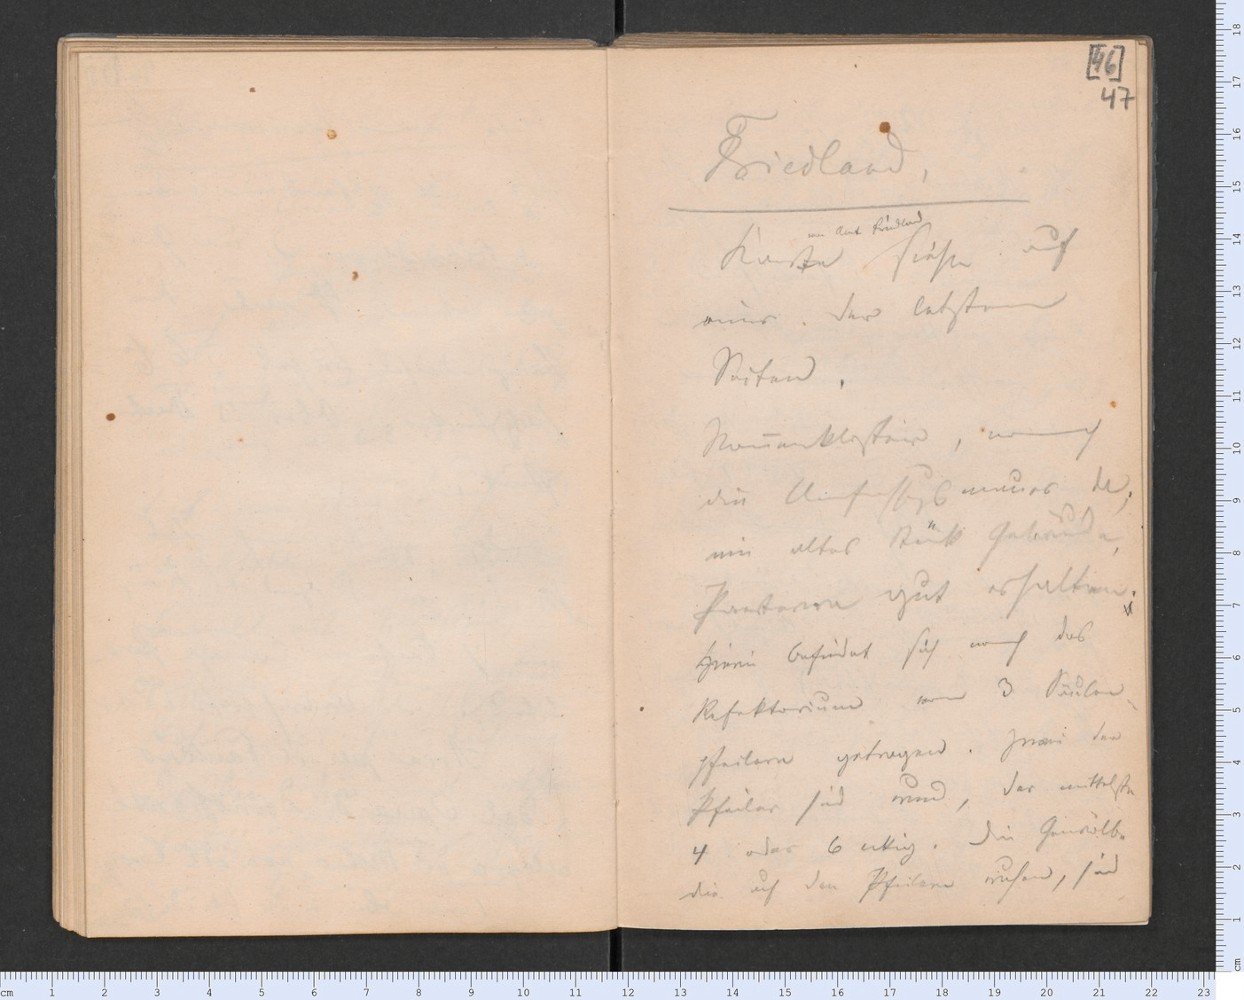 [46]
47
Friedland,
von Amt Friedland
Karte siehe auf
einer der letzten
Seiten.
Nonnenkloster, noch
die Umfassungsmauer da,
ein altes Stück Gebäude,
gut erhalten.
Hierin befindet sich noch das
Refektorium von 3 Säulen
pfeilern getragen. Zwei der
Pfeiler sind rund, der mittelste
4 oder 6 eckig. Die Gewölbe
die auf den Pfeilern ruhen, sind